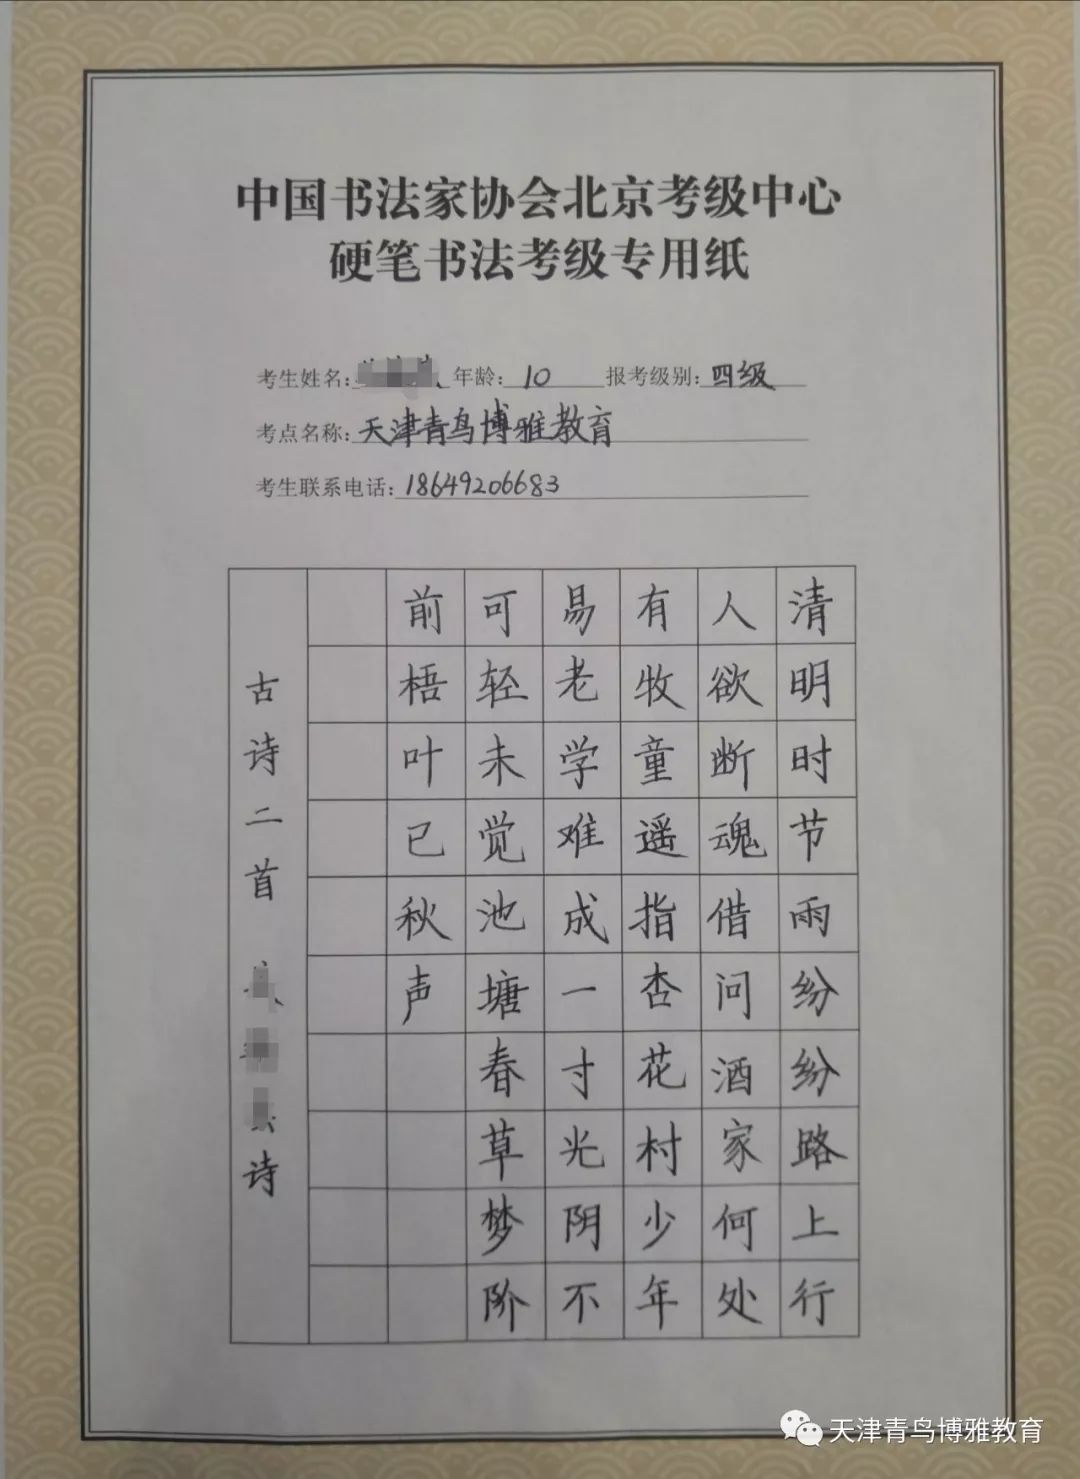 中国书法家协会北京考级中心
硬笔书法考级专用纸
考生姓名: 年龄: 10 报考级别: 四级
考点名称: 天津青鸟博雅教育
考生联系电话: 18649206683
清明时节雨纷纷路上行
人欲断魂借问酒家何处
有牧童遥指杏花村少年
易老学难成一寸光阴不
可轻未觉池塘春草梦阶
前梧叶已秋声
古诗二首 诗
天津青鸟博雅教育